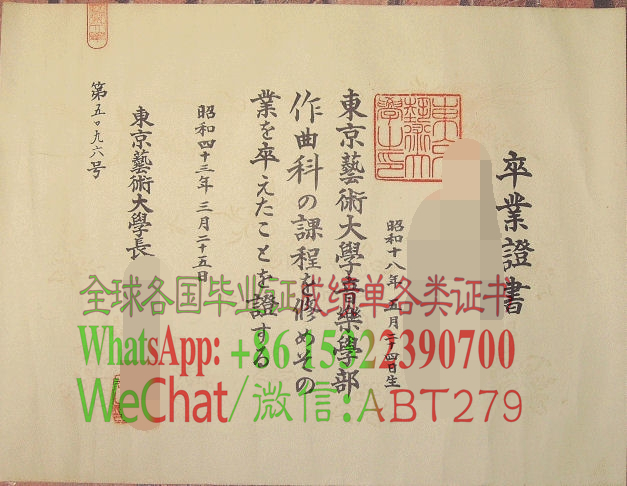 卒業證書
昭和十八年 五月二四日生
東京藝術大學音樂學部
作曲科の課程を修めその
業を卒えたことを證する
昭和四十三年 三月二十五日
東京藝術大學長
第五〇九六号
全球各国毕业证成绩单各类证书
WhatsApp: +86 15322390700
WeChat/微信:ABT279